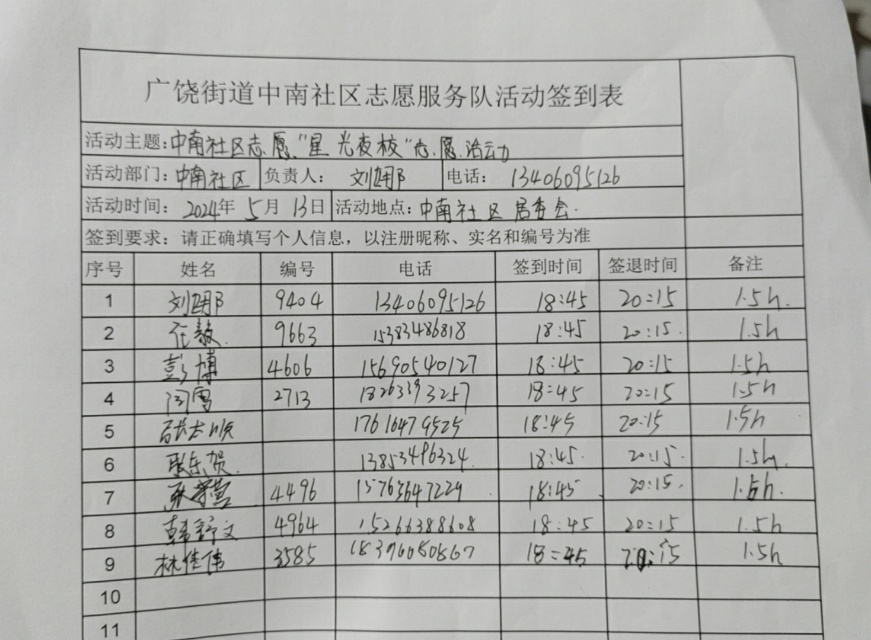 广饶街道中南社区志愿服务队活动签到表
活动主题:中南社区志愿"星光夜校"志愿活动
活动部门:中南社区 负责人: 刘 电话: 13406095126
活动时间: 2024年 5月 13日 活动地点:中南社区居委会.
签到要求:请正确填写个人信息,以注册昵称、实名和编号为准
序号 姓名 编号 电话 签到时间 签退时间 备注
1 刘 9404 13406095126 18:45 20:15 1.5h.
2 任毅. 9663 15383486818 18:45 20:15. 1.5h
3 彭博 4606 15690540127 18:45 20:15 1.5h
4 闫雪 2713 18263393257 18:45 20:15 1.5h
5 17616479525 18:45 20:15 1.5h
6 13853496324. 18:45. 20:15. 1.5h.
7 4496 15763647229 18:45 20:15. 1.5h.
8 韩舒文 4964 15266388608 18:45 20:15 1.5h
9 林佳伟 3585 18396080867 18:45 20:15 1.5h
10
11